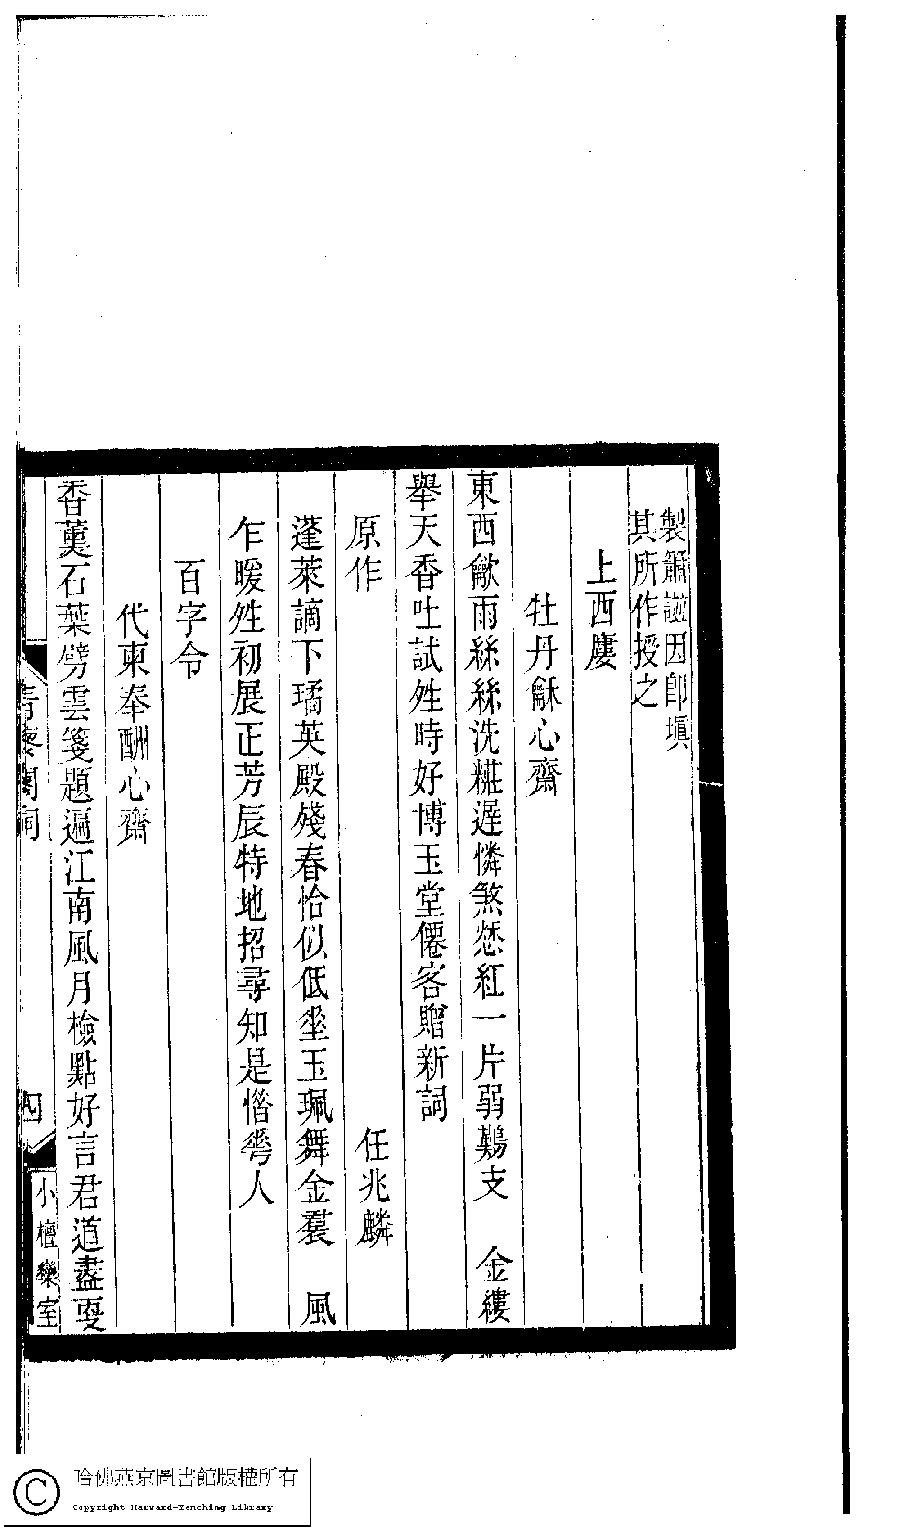 製簫譜因卽塡
其所作授之
上西廔
牡丹龢心齋
東西歛雨絲絲洗糚遲憐煞愁紅一片弱難支　金縷
舉天香吐試姓時好博玉堂僊客贈新詞
原作　任兆麟
蓬萊謫下璚英殿殘春恰似低坐玉珮舞金裠　風
乍暖姓初展正芳辰特地招尋知是惜蕚人
百字令
代柬奉酬心齋
香薰石葉劈雲箋題遍江南風月檢點好言君道盡耍
青藜閣詞
四
小檀欒室
哈佛燕京圖書館版權所有
Copyright Harvard-Yenching Library